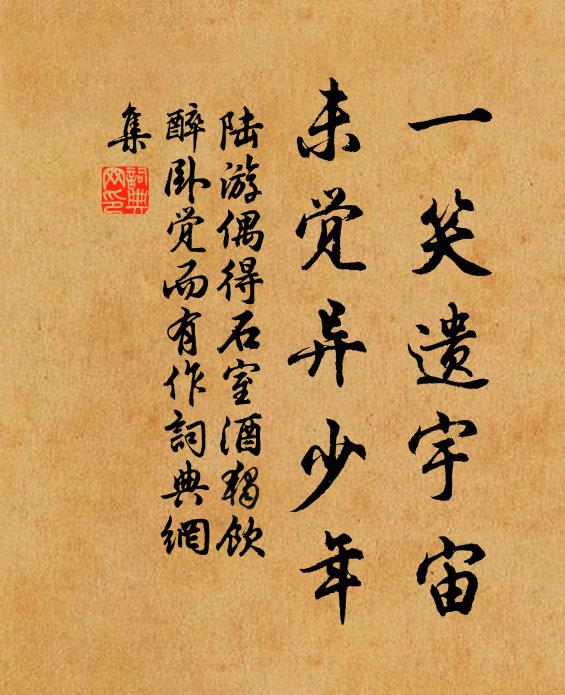 一笑遗宇宙
未觉异少年
陆游偶得石室酒独饮
醉卧觉而有作詞典網
集
詞典網印